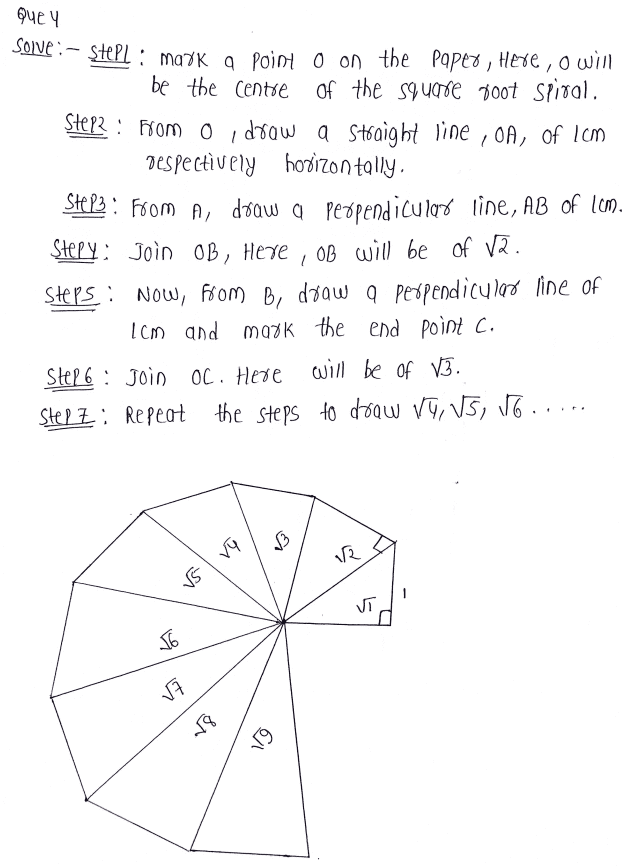 Que 4
Solve :- Step1 : mark a point O on the Paper, Here, O will
be the centre of the square root spiral.
Step2 : From O, draw a straight line, OA, of 1cm
respectively horizontally.
Step3 : From A, draw a perpendicular line, AB of 1cm.
Step4 : Join OB, Here, OB will be of √2.
Step5 : Now, From B, draw a perpendicular line of
1cm and mark the end point C.
Step6 : Join OC. Here will be of √3.
Step7 : Repeat the steps to draw √4, √5, √6 .....
√4
√3
√2
√5
√1
1
√6
√7
√8
√9